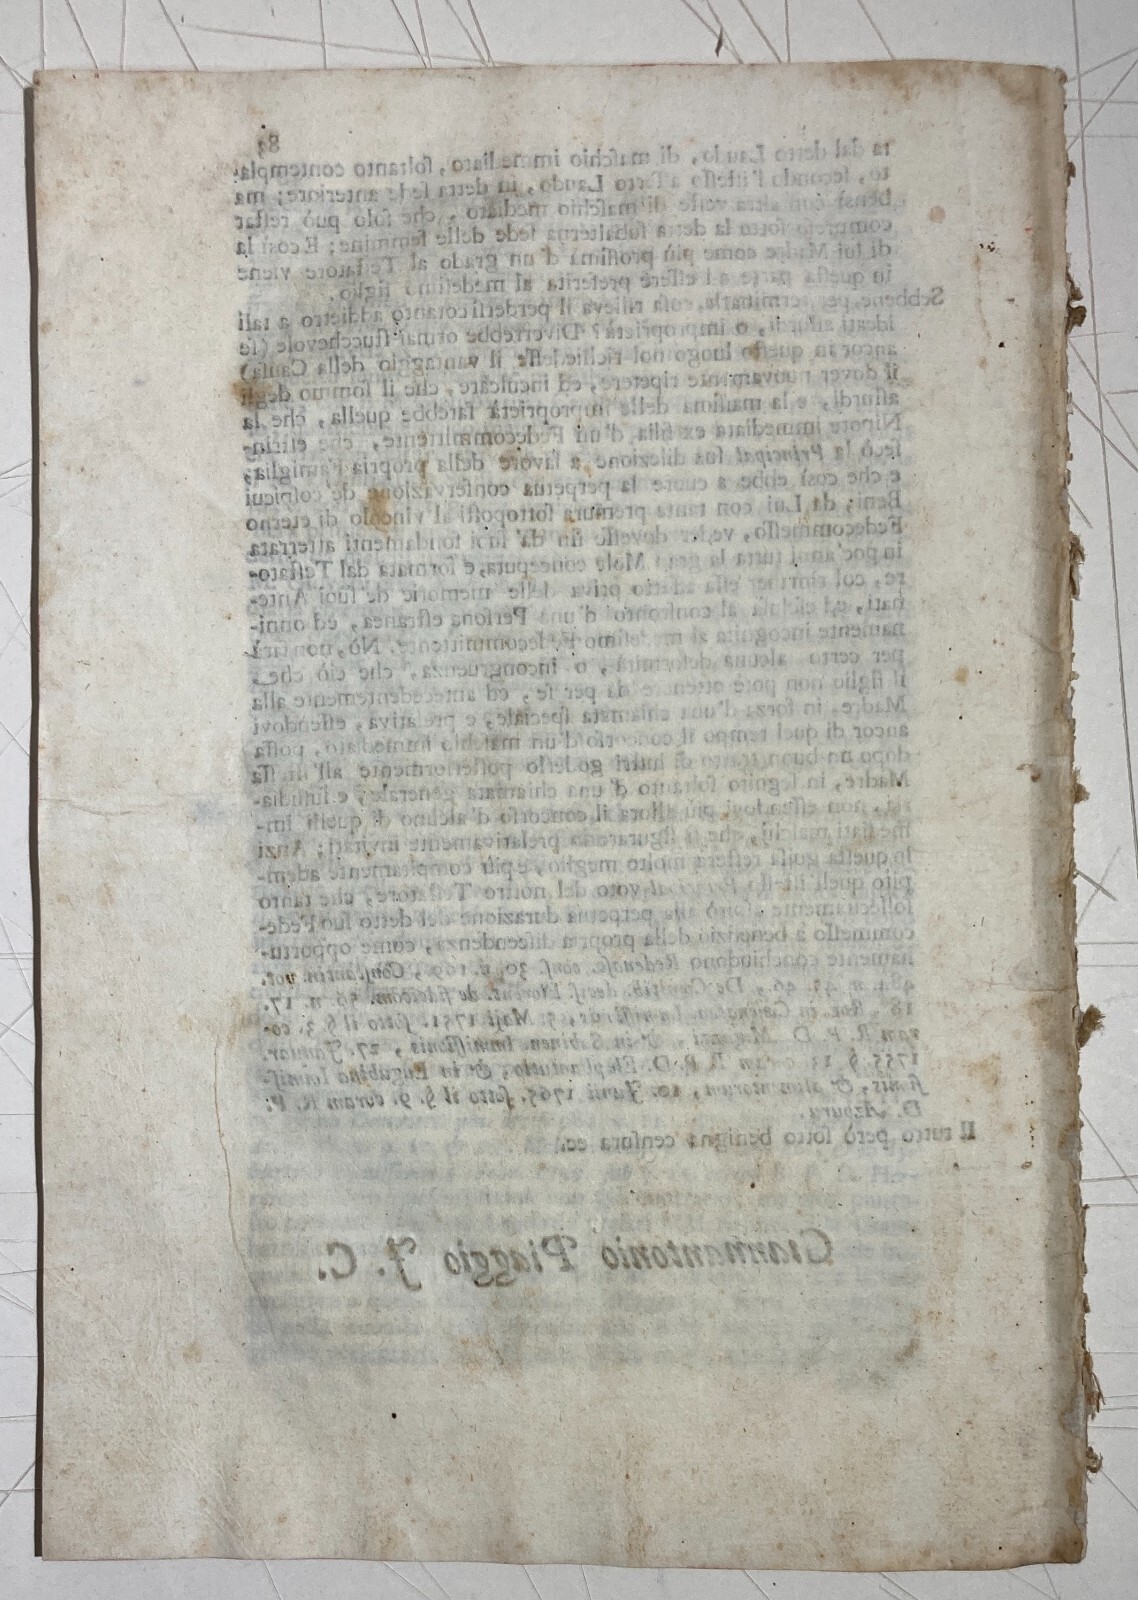 83
ta dal detto Laudo, di maschio immediato, soltanto contempla-
to, secondo l'istesso Laudo, in detta sede anteriore; ma
bensì con altra veste di maschio mediato, che solo può restar
compreso sotto la detta subalterna sede delle femmine; E così la
di lui Madre come più prossima d'un grado al Testatore viene
in questa parte ad essere preferita al medesimo figlio.
Sebbene, per terminarla, cosa rilieva il perdersi cotanto addietro a tali
ideati assurdi, o improprietà? Diverrebbe ormai stucchevole (se
ancor in questo luogo nol richiedesse il vantaggio della Causa)
il dover nuovamente ripetere, ed inculcare, che il sommo degli
assurdi, e la massima delle improprietà sarebbe quella, che la
Nipote immediata ex filia d'un Fedecommittente, che
la Principal sua dilezione a favore della propria Famiglia,
e che così ebbe a cuore la perpetua conservazione de' cospicui
Beni; da Lui con tanta premura sottoposti al vincolo di eterno
Fedecommesso, veder dovesse fin da' suoi fondamenti atterrata
in poc'anni tutta la gran Mole conceputa, e formata dal Testato-
re, col rimaner essa affatto priva delle memorie de' suoi Ante-
nati, ed esclusa al confronto d'una Persona estranea, ed onni-
namente incognita al medesimo Fedecommittente. Nò, non sarà
per certo alcuna deformità, o incongruenza, che ciò che
il figlio non potè ottenere da per se, ed antecedentemente alla
Madre, in forza d'una chiamata speciale, e prelativa, essendovi
ancor di quel tempo il concorso d'un maschio immediato, possa
dopo un buon tratto di lustri goderlo posteriormente all'istessa
Madre, in seguito soltanto d'una chiamata generale, e sussidia-
ria, non essendovi più allora il concorso d'alcuno di quelli im-
mediati maschj, che si figurarono prelativamente invitati; Anzi
in questa guisa resterà molto meglio, e più compleamente adem-
pito quell'istesso Principal voto del nostro Testatore, che tanto
sollecitamente alla perpetua durazione del detto suo Fede-
commesso a benefizio della propria discendenza, come opportu-
namente conchiudono Redenasc. cons. 30. n. 169., Constantin. vot.
484. n. 45. 46., De decis. Florent. de fideicom. 56. n. 17.
18., Rot. in 5. Maji 1751. sotto il §. 3. co-
ram R. P. D. & in Sabinen. Immissionis, 27. Januar.
1755. §. 13. coram R. P. D. Elephantutio, & in Eugubina Immis-
sionis, & alimentorum, 10. Junii 1765. sotto il §. 9. coram R. P.
D. Azpuru.
Il tutto però sotto benigna censura ec.
Gianmantonio Piaggio J. C.